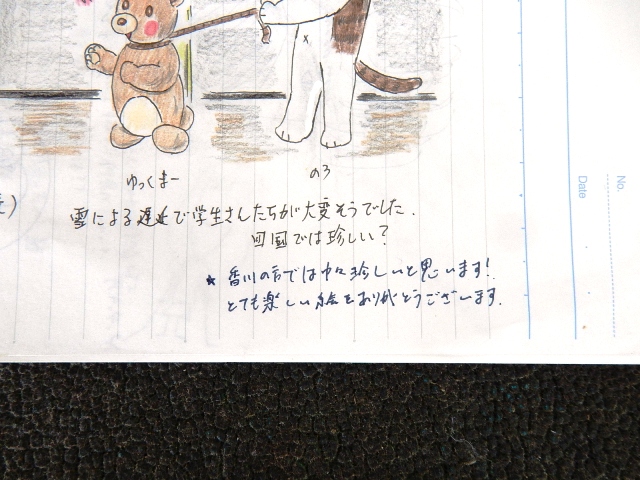 ゆっくまー
のろ
雪による遅延で学生さんたちが大変そうでした.
四国では珍しい?
★ 香川の方では中々珍しいと思います!
とても楽しい絵をありがとうございます.
No.
Date